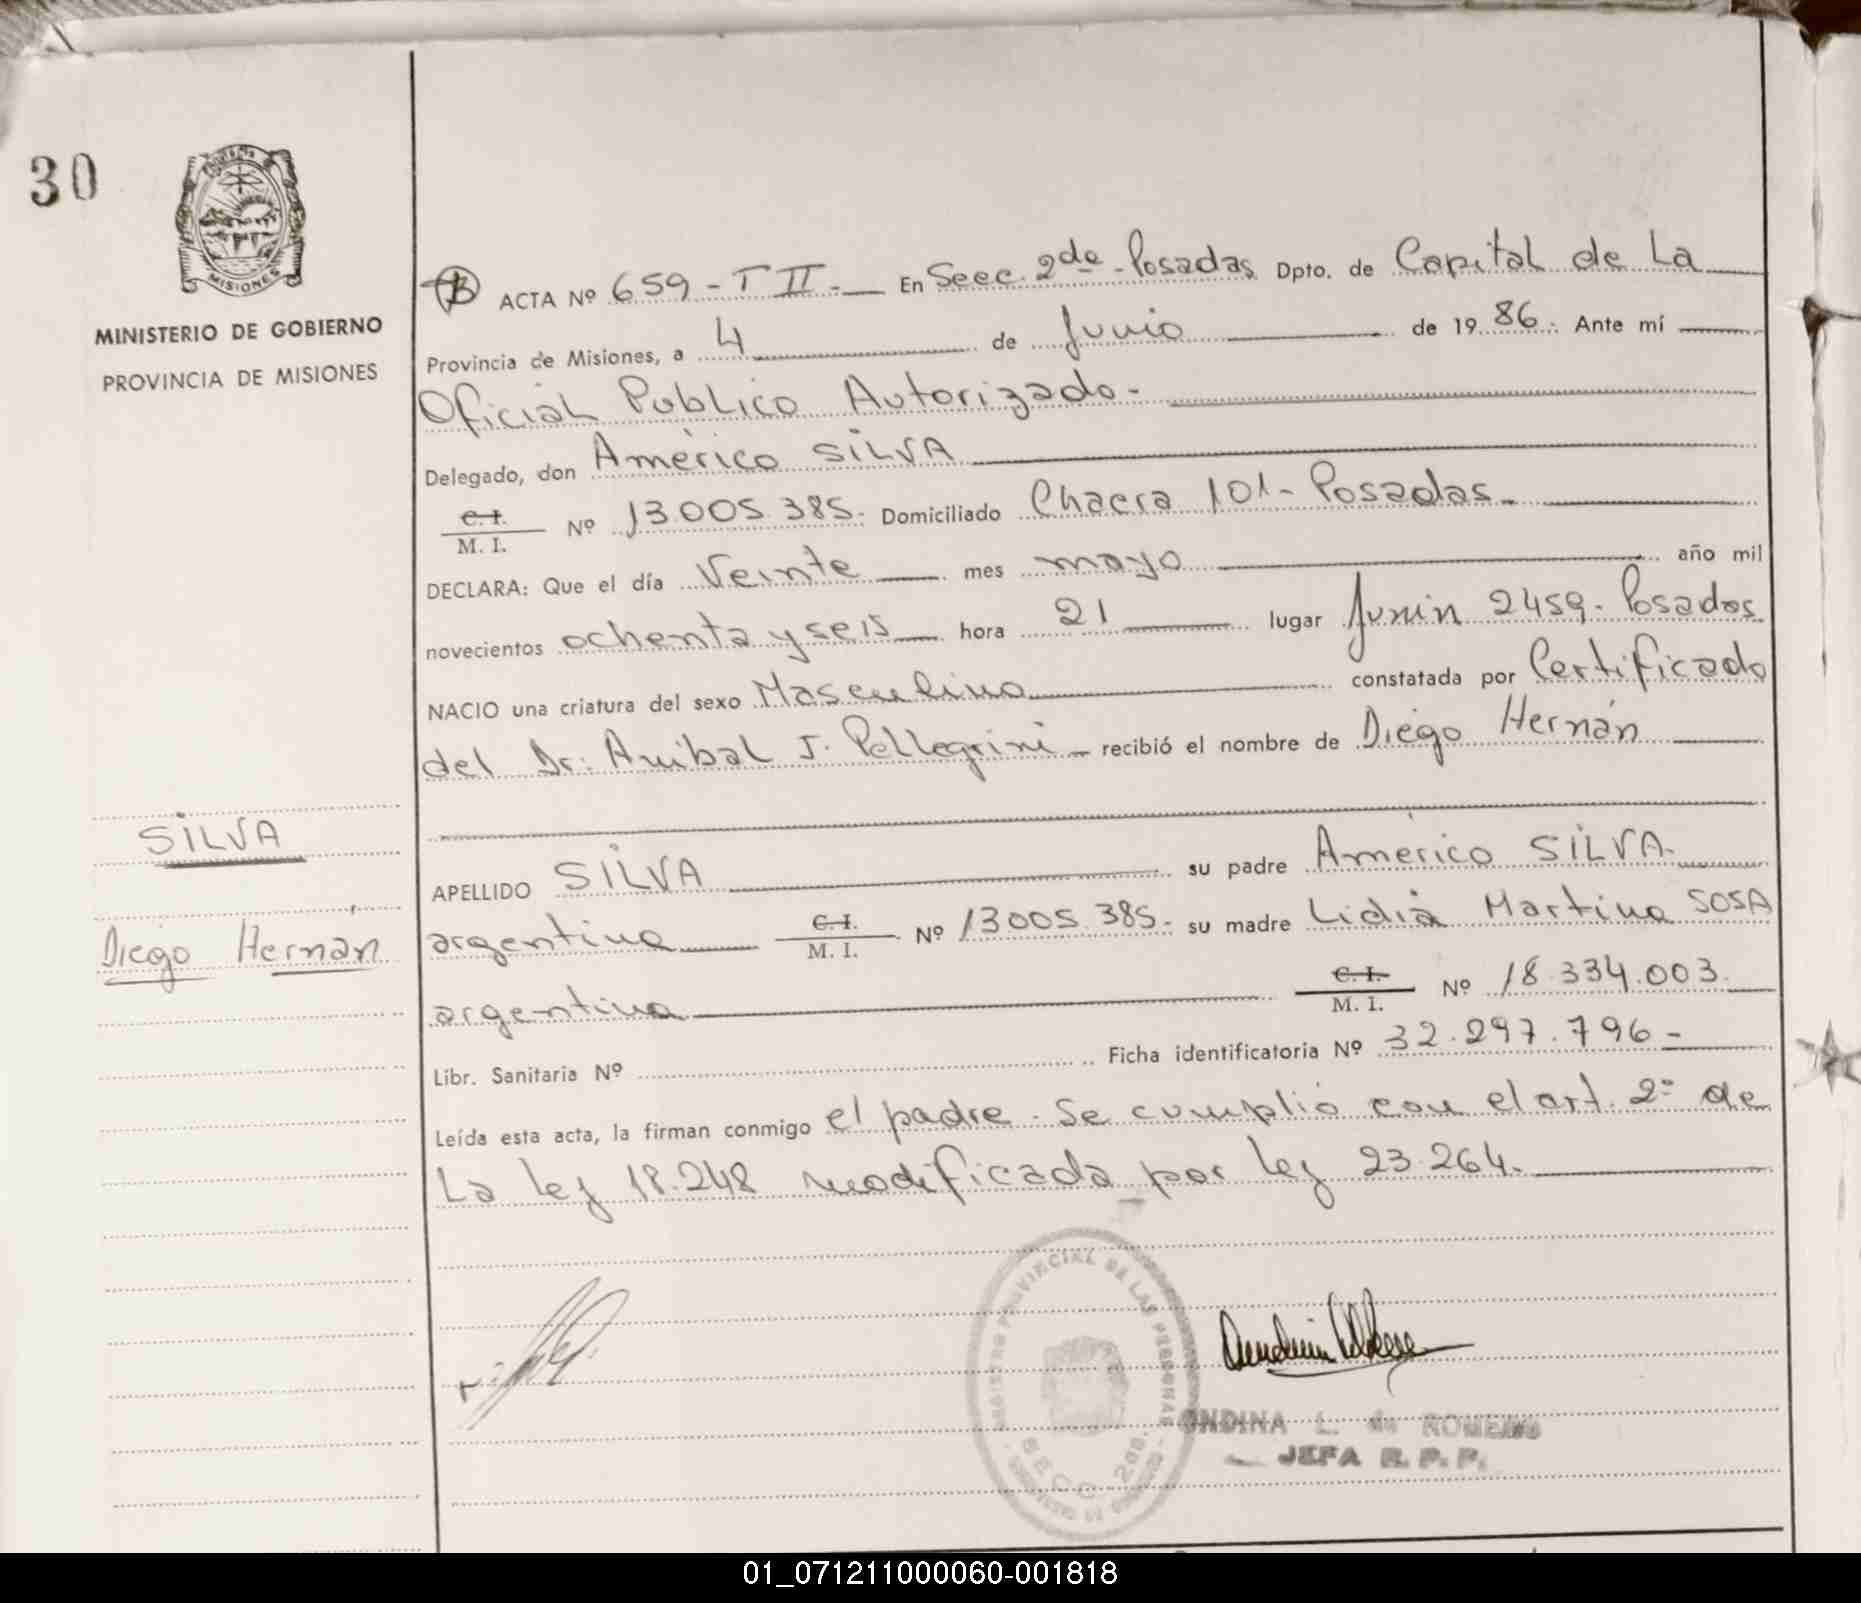 30
MISIONES
MINISTERIO DE GOBIERNO
PROVINCIA DE MISIONES
SILVA
Diego Hernán
B ACTA Nº 659 - T II - En Secc. 2da - Posadas Dpto. de Capital de La
Provincia de Misiones, a 4 de Junio de 1986. Ante mí
Oficial Publico Autorizado.-
Delegado, don Américo SILVA
C.I.
M. I. Nº 13.005.385. Domiciliado Chacra 101 - Posadas.
DECLARA: Que el día Veinte mes mayo año mil
novecientos ochenta y seis hora 21 lugar Junin 2459 - Posadas
NACIO una criatura del sexo Masculino constatada por Certificado
del Dr: Anibal J. Pellegrini recibió el nombre de Diego Hernán
APELLIDO SILVA su padre Américo SILVA.
argentino C.I.
M. I. Nº 13005.385. su madre Lidia Martina SOSA
argentina C.I.
M. I. Nº 18.334.003.
Libr. Sanitaria Nº Ficha identificatoria Nº 32.297.796-
Leída esta acta, la firman conmigo el padre. Se cumplió con el art. 2º de
La ley 18.248 modificada por ley 23.264.
REGISTRO PROVINCIAL DE LAS PERSONAS
SECC. 2da.
ONDINA L. de ROMERO
JEFA R. P. P.
01_071211000060-001818